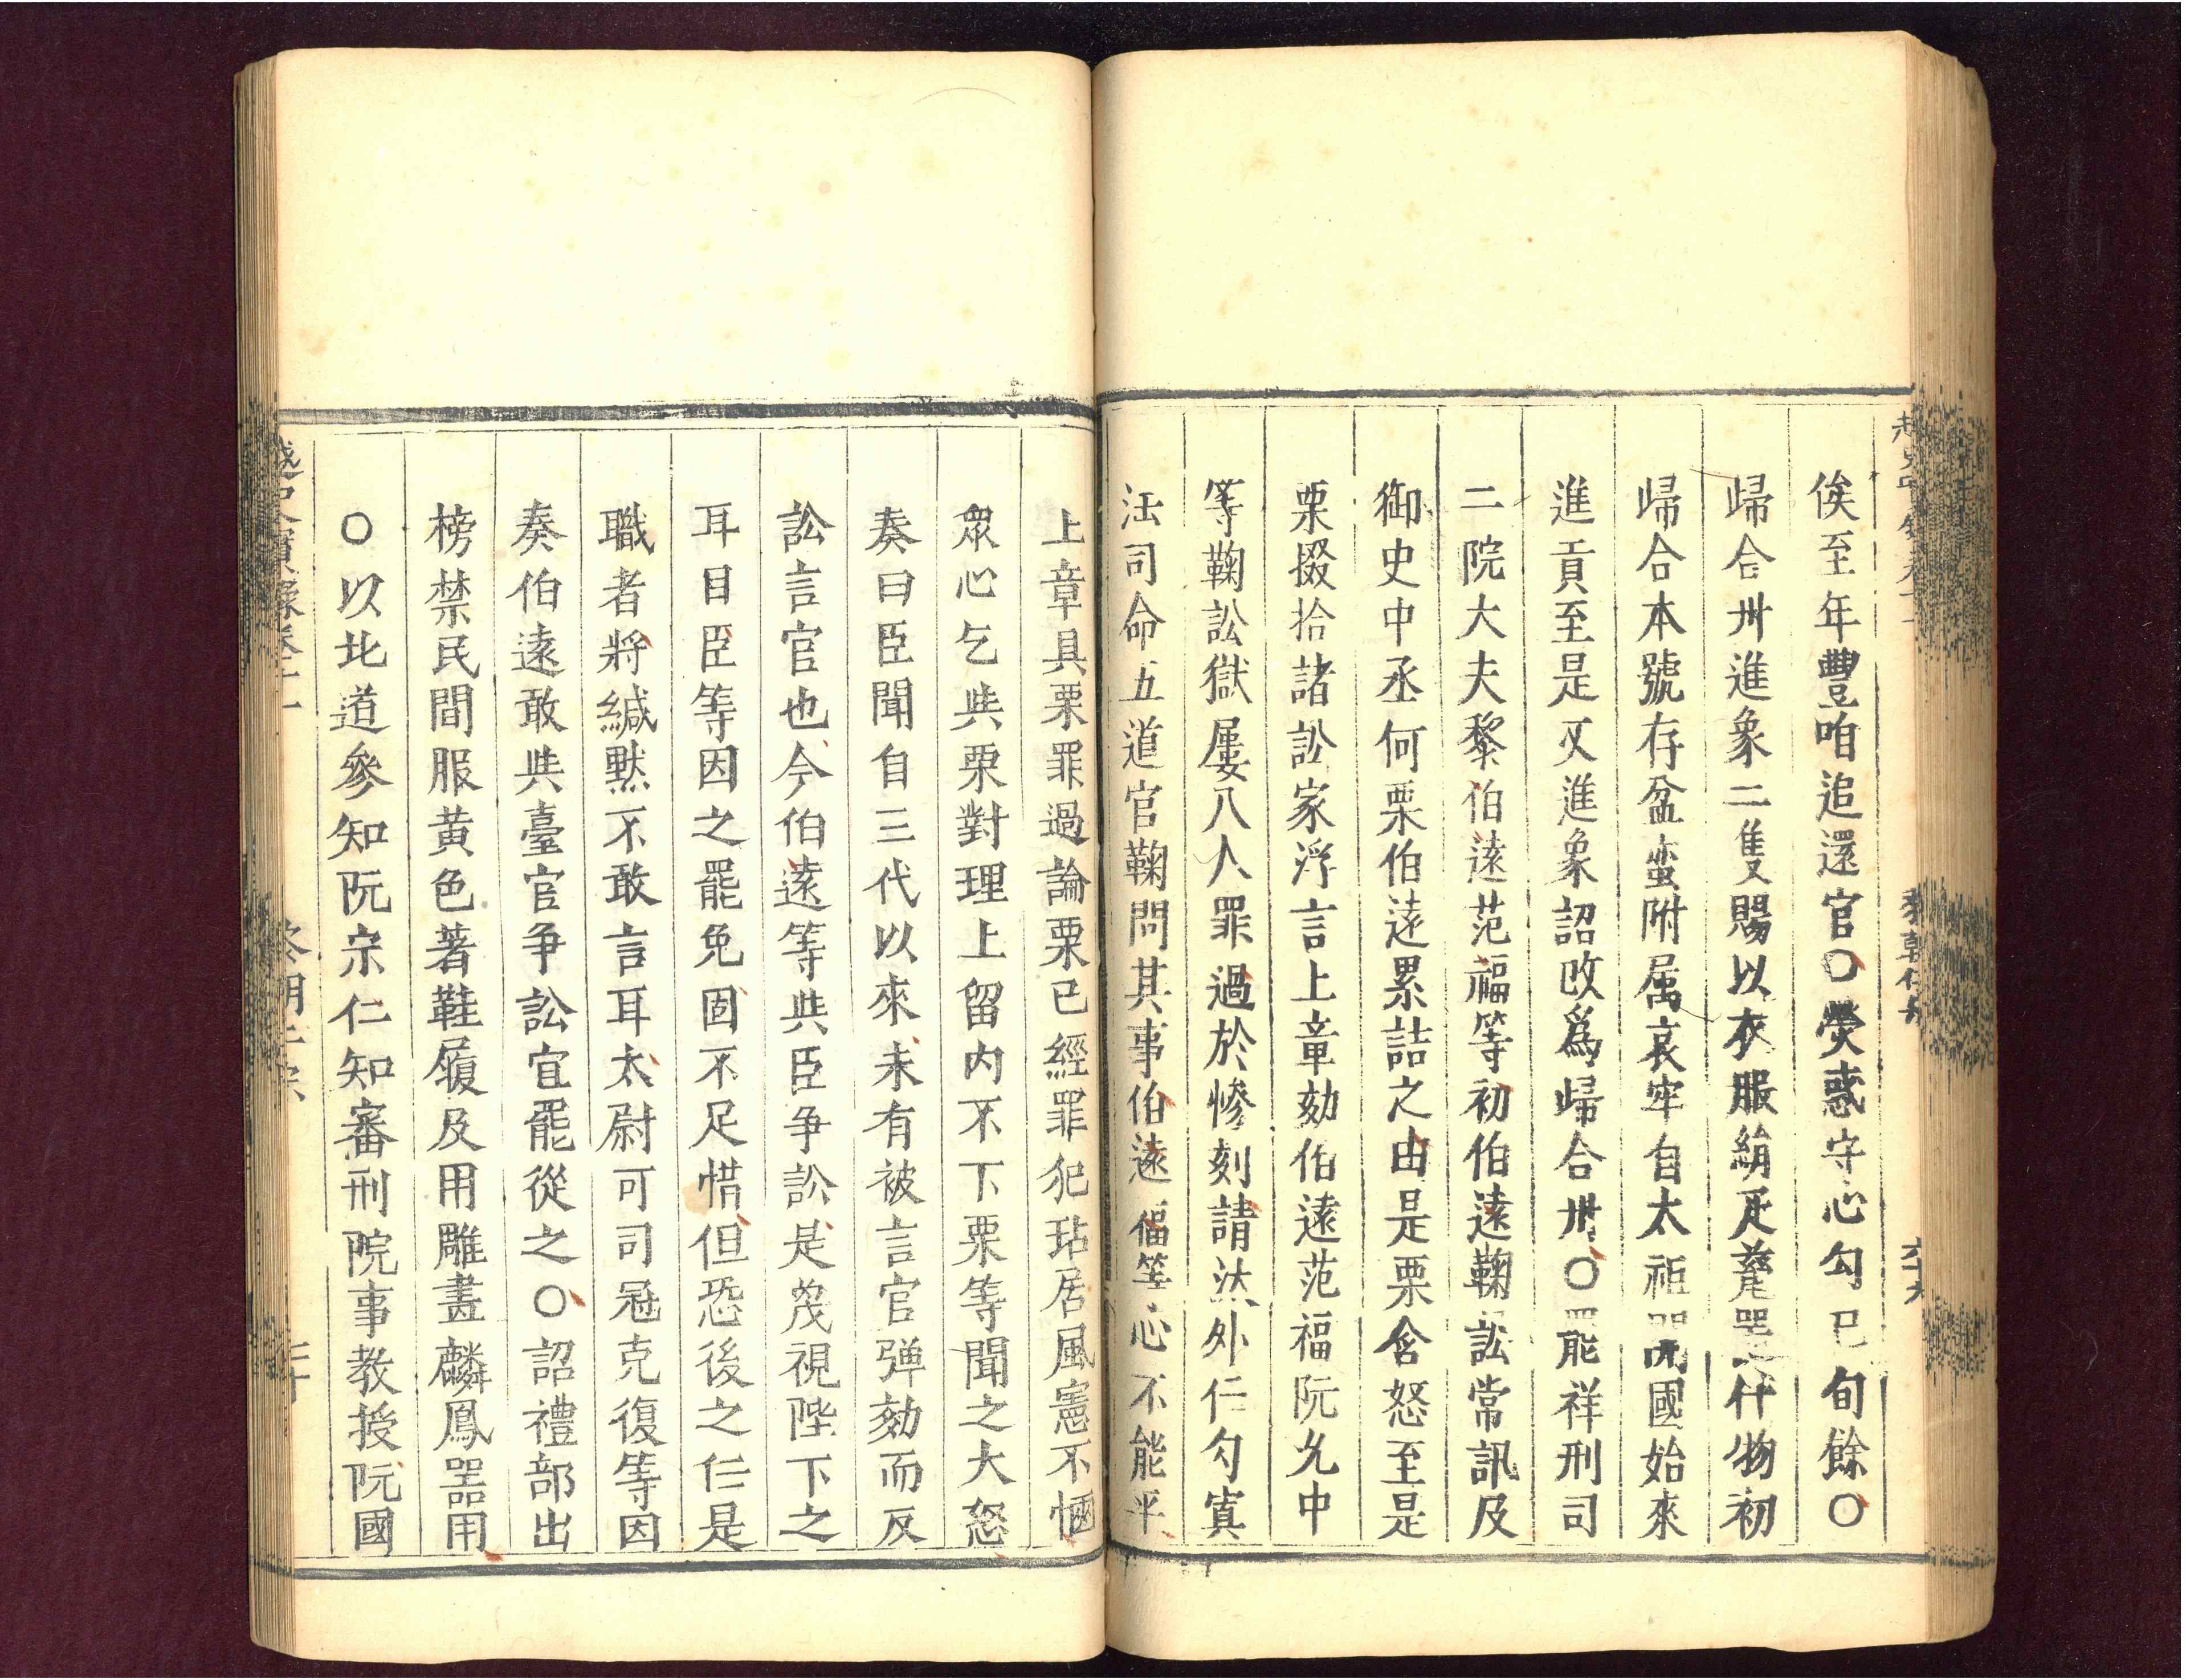 俟至年豐咱追還官〇熒惑守心勾巳旬餘〇
歸合州進象二隻賜以衣服絹疋瓷器什物初
歸合本號存盆蛮附属哀牢自太祖開國始來
進貢至是又進象詔改爲歸合州〇罷祥刑司
二院大夫黎伯遠范福等初伯遠鞠訟常訊及
御史中丞何栗伯遠累詰之由是栗含怒至是
栗掇拾諸訟家浮言上章劾伯遠范福阮允中
等鞠訟獄屡八人罪過於慘刻請法外仁勾寘
法司命五道官鞠問其事伯遠福等心不能平
上章具栗罪過論栗已經罪犯玷居風憲不愜
衆心乞與栗對理上留内不下栗等聞之大怒
奏曰臣聞自三代以來未有被言官弹劾而反
訟言官也今伯遠等與臣争訟是蔑視陛下之
耳目臣等因之罷免固不足惜但恐後之仁是
職者將緘默不敢言耳太尉可司冦克復等因
奏伯遠敢與臺官争訟宜罷從之〇詔禮部出
榜禁民間服黄色著鞋履及用雕畫麟鳳噐用
〇以北道參知阮宗仁知審刑院事教授阮國